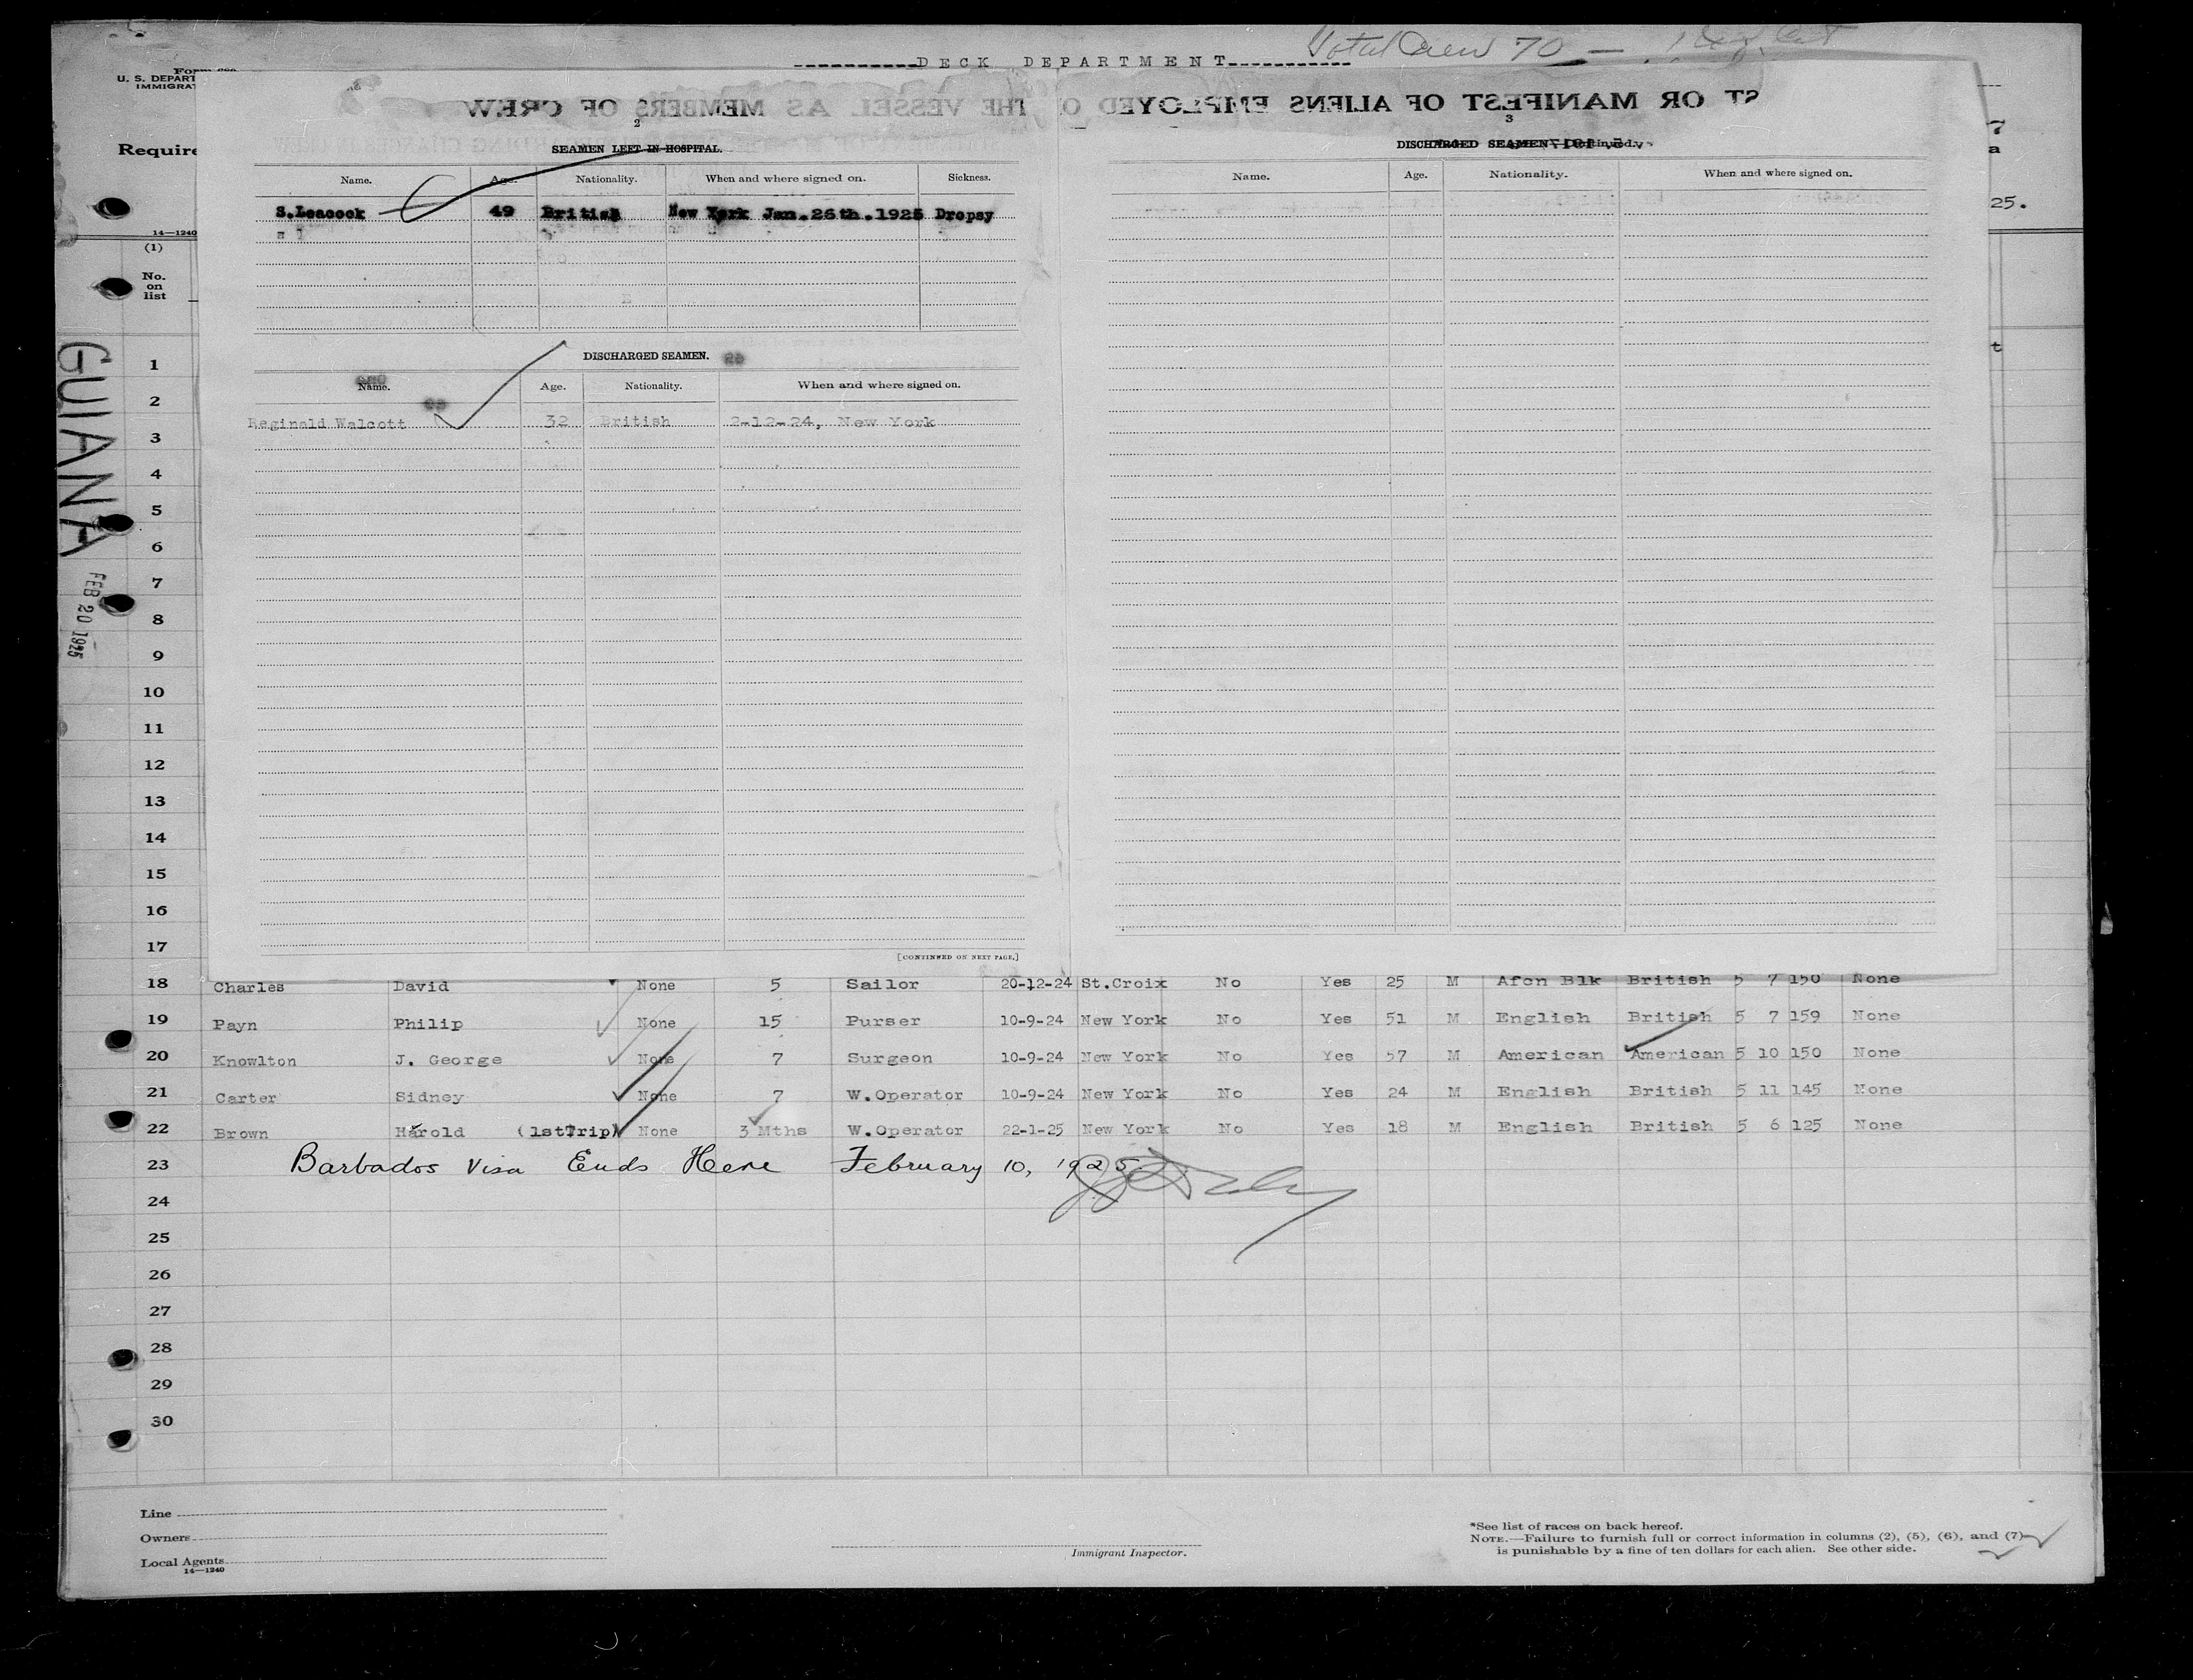 Total Crew 70 —
----------DECK DEPARTMENT----------
U. S. DEPART
IMMIGRAT
ST OR MANIFEST OF ALIENS EMPLOYED O THE VESSEL AS MEMBERS OF CREW
Require
2
SEAMEN LEFT IN HOSPITAL.
Name. Age. Nationality. When and where signed on. Sickness.
S.Leacock 49 British New York Jan.26th.1925 Dropsy
DISCHARGED SEAMEN.
Name. Age. Nationality. When and where signed on.
Reginald Walcott 32 British 2-12-24, New York
[CONTINUED ON NEXT PAGE.]
3
DISCHARGED SEAMEN—Continued.
Name. Age. Nationality. When and where signed on.
25.
14—1240
(1)
No.
on
list
GUIANA
FEB 20 1925
1
2
3
4
5
6
7
8
9
10
11
12
13
14
15
16
17
18 Charles David None 5 Sailor 20-12-24 St.Croix No Yes 25 M Afcn Blk British 5 7 150 None
19 Payn Philip None 15 Purser 10-9-24 New York No Yes 51 M English British 5 7 159 None
20 Knowlton J. George None 7 Surgeon 10-9-24 New York No Yes 57 M American American 5 10 150 None
21 Carter Sidney None 7 W.Operator 10-9-24 New York No Yes 24 M English British 5 11 145 None
22 Brown Harold (1stTrip) None 3 Mths W.Operator 22-1-25 New York No Yes 18 M English British 5 6 125 None
23 Barbados Visa Ends Here February 10, 1925.
24
25
26
27
28
29
30
Line
Owners
Local Agents
14—1240
Immigrant Inspector.
*See list of races on back hereof.
NOTE.—Failure to furnish full or correct information in columns (2), (5), (6), and (7)
is punishable by a fine of ten dollars for each alien. See other side.